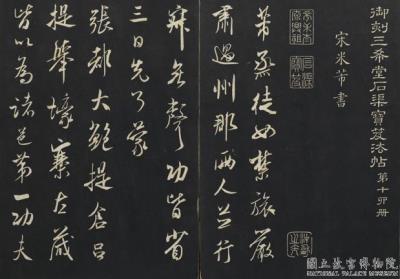 御刻三希堂石渠寶笈法帖 第十四冊
宋米芾書
芾烝徒如禁旅嚴
肅過州郡兩人並行
寂無聲功皆省
三日先了蒙
張都大鮑提倉呂
提舉壕寨左藏
皆以為諸邑第一功夫
國立故宮博物院